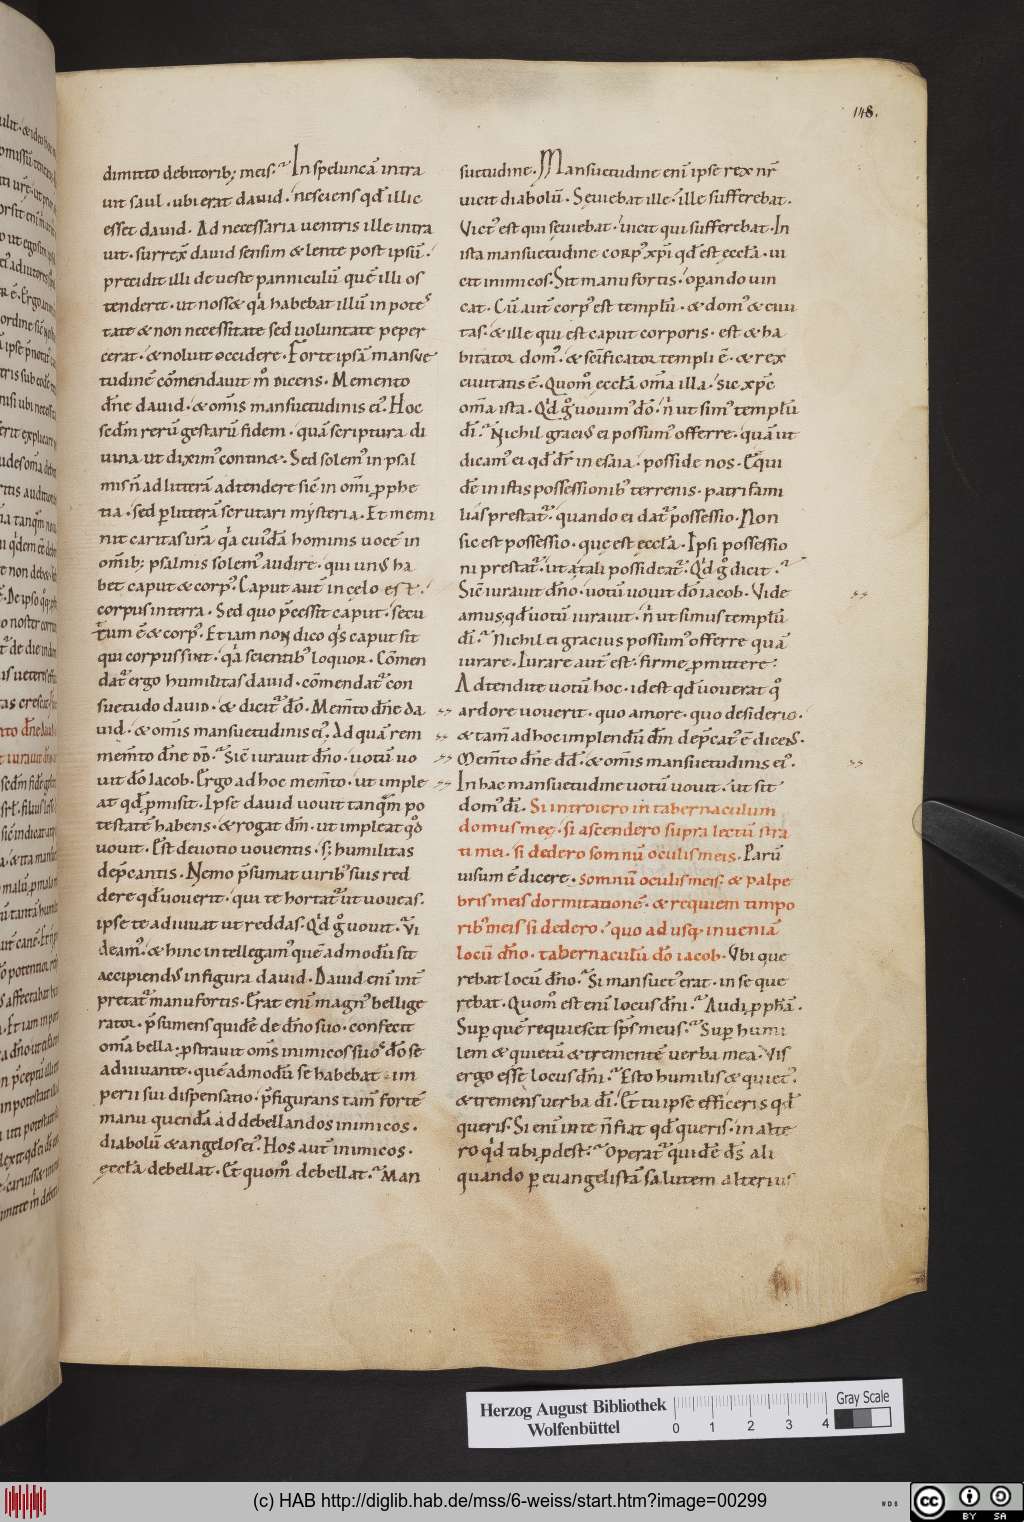 148.
dimitto debitorib; meis. In speluncā intra
uit saul . ubi erat dauid . nesciens qđ illic
esset dauid . Ad necessaria uentris ille intra
uit . surrex̄ dauid sensim & lente post ipsū .
precidit illi de ueste panniculū quē illi os
tenderet . ut nosset q'a habebat illū in potes
tate & non necessitate sed uoluntate peper
cerat . & noluit occidere . Forte ipsā mansue
tudinē cōmendauit m° dicens . Memento
dn̄e dauid . & om̄is mansuetudinis ei' . Hoc
scđm rerū gestarū fidem . quā scriptura di
uina ut dixim' continet . Sed solem' in psal
mis n̄ ad litterā adtendere sic̄ in om̄i ꝓphe
tia . sed ꝑ litterā scrutari mysteria . Et memi
nit caritas ūrā . q'a cui'dā hominis uocē in
om̄ib; psalmis solem' audire . qui un' ha
bet caput & corp' . Caput aut̄ in celo est .
corpus in terra . Sed quo p̄cessit caput . secu
turum ē & corp' . Etiam non dico q's caput sit
qui corpus sint . q'a scientib' loquor . Cōmen
dat' ergo humilitas dauid . cōmendat' con
suetudo dauid . & dicit' dō . Mem̄to dn̄e da
uid . & om̄is mansuetudinis ei' . Ad quā rem
mem̄to dn̄e dd̄ . Sic̄ iurauit dn̄o . uotū uo
uit dō iacob . Ergo ad hoc mem̄to . ut imple
at qđ ꝓmisit . Ipse dauid uouit tanq̄m po
testatē habens . & rogat dm̄ . ut impleat qđ
uouit . Est deuotio uouentis . s; humilitas
dep̄cantis . Nemo p̄sumat uirib' suis red
dere qđ uouerit . qui te hortat' ut uoueas .
ipse te adiuuat ut reddas . Q'd g° uouit . Vi
deam' . & hinc intellegam' quē admodū sit
accipiend' in figura dauid . Dauid eni int̄
pretat' manu fortis . Erat eni magn' bellige
rator . p̄sumens quidē de dn̄o suo . confecit
om̄a bella . ꝓstrauit om̄s inimicos suos dō se
adiuuante . quē admodū se habebat . im
perii sui dispensatio . p̄figurans tam̄ fortē
manu quendā ad debellandos inimicos .
diabolū & angelos ei' . Hos aut̄ inimicos .
ęccła debellat . Et quom° debellat . Man
suetudine . Mansuetudine eni ipse rex nr̄
uicit diabolū . Seuiebat ille . ille sufferebat .
Vict' est qui seuiebat . uicit qui sufferebat . In
ista mansuetudine corp' xp̄i qđ est ęccła . ui
cit inimicos . Sit manu fortis . operando uin
cat . Cū aut̄ corp' est templū . & dom' & ciui
tas . & ille qui est caput corporis . est & ha
bitator dom' . & sc̄ificator templi ē . & rex
ciuitatis ē . Quom° ęccła om̄a illa . sic xp̄c
om̄a ista . Q'd g° uouim' dō . n' ut sim' templū
dī . Nichil graci' ei possum' offerre . quā ut
dicam' ei qđ dr̄ in esaia . posside nos . Et qui
dē in istis possessionib' terrenis . patri fami
lias prestat' . quando ei dat' possessio . Non
sic est possessio . que est ęccła . Ipsi possessio
ni prestat' . ut a tali possideat' . Q'd g° dicit .
Sic̄ iurauit dn̄o . uotū uouit dō iacob . Vide
amus . qđ uotū iurauit . n' ut simus templū
dī . Nichil ei gracius possum' offerre quā
iurare . Iurare aut̄ est . firme ꝓmittere .
Adtendite uotū hoc . idest qđ uouerat q°
ardore uouerit . quo amore . quo desiderio .
& tam̄ ad hoc implendū dm̄ dep̄cat' ē dicens .
Mem̄to dn̄e dd̄ . & om̄is mansuetudinis ei' .
In hac mansuetudine uotū uouit . ut sit
dom' dī . Si introiero in tabernaculum
domus meę . si ascendero supra lectū stra
ti mei . si dedero somnū oculis meis . Parū
uisum ē dicere . somnū oculis meis . & palpe
bris meis dormitationē . & requiem timpo
rib' meis si dedero . quo ad usq; inueniā
locū dn̄o . tabernaculū dō iacob . Vbi que
rebat locū dn̄o . Si mansuet' erat . in se que
rebat . Quom° est eni locus dn̄i . Audi ꝓphā .
Super quē requiescit sp̄s meus . Super humi
lem & quietū & trementē uerba mea . Vis
ergo esse locus dn̄i . Esto humilis & quiet' .
& tremens uerba dī . Et tu ipse efficeris qđ
queris . Si eni in te n̄ fiat qđ queris . in alte
ro q'd tibi ꝓdest . Operat' quidē ds̄ ali
quando ꝑ euangelistā salutem alterius
Herzog August Bibliothek
Wolfenbüttel
0 1 2 3 4
Gray Scale
(c) HAB http://diglib.hab.de/mss/6-weiss/start.htm?image=00299
WDB
cc BY SA